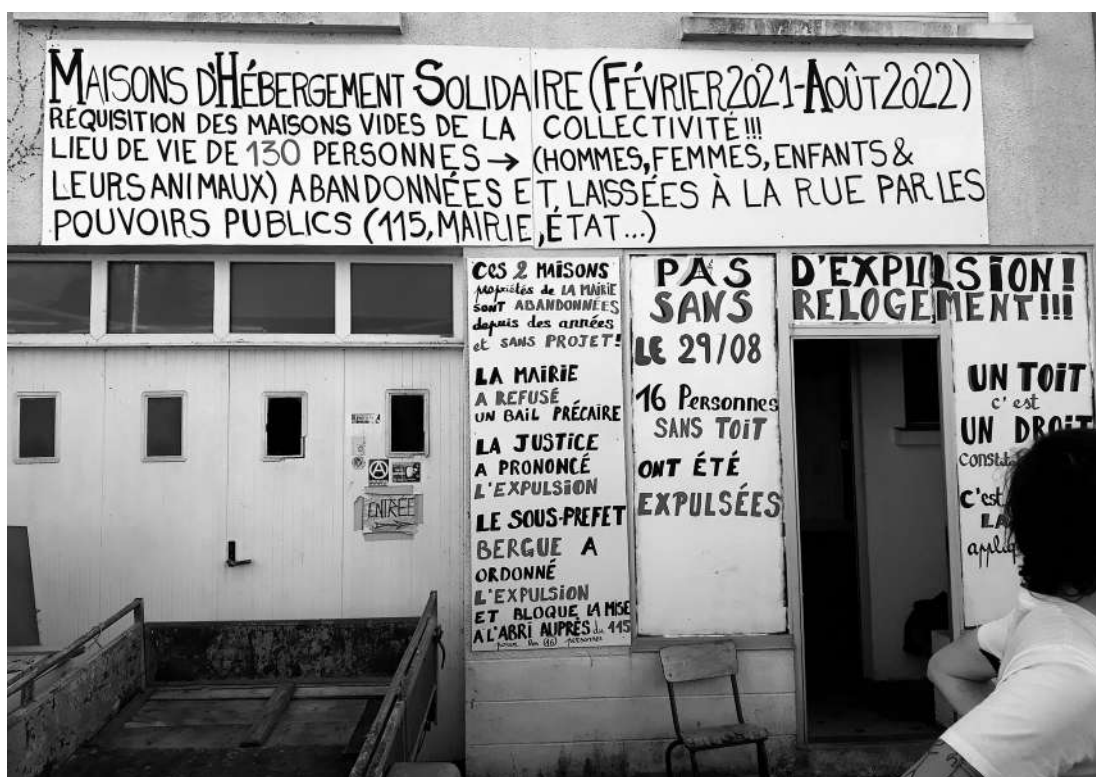 MAISONS D'HÉBERGEMENT SOLIDAIRE (FÉVRIER 2021-AOÛT 2022)
RÉQUISITION DES MAISONS VIDES DE LA COLLECTIVITÉ!!!
LIEU DE VIE DE 130 PERSONNES → (HOMMES, FEMMES, ENFANTS &
LEURS ANIMAUX) ABANDONNÉES ET LAISSÉES À LA RUE PAR LES
POUVOIRS PUBLICS (115, MAIRIE, ÉTAT...)
CES 2 MAISONS
propriétés de LA MAIRIE
SONT ABANDONNÉES
depuis des années
et SANS PROJET!
LA MAIRIE
A REFUSÉ
UN BAIL PRÉCAIRE
LA JUSTICE
A PRONONCÉ
L'EXPULSION
LE SOUS-PREFET
BERGUE A
ORDONNÉ
L'EXPULSION
ET BLOQUE LA MISE
A L'ABRI AUPRÈS du 115
pour les (16) personnes
PAS D'EXPULSION!
SANS RELOGEMENT!!!
LE 29/08
16 Personnes
SANS TOIT
ONT ÉTÉ
EXPULSÉES
UN TOIT
c'est
UN DROIT
C'est
ENTRÉE